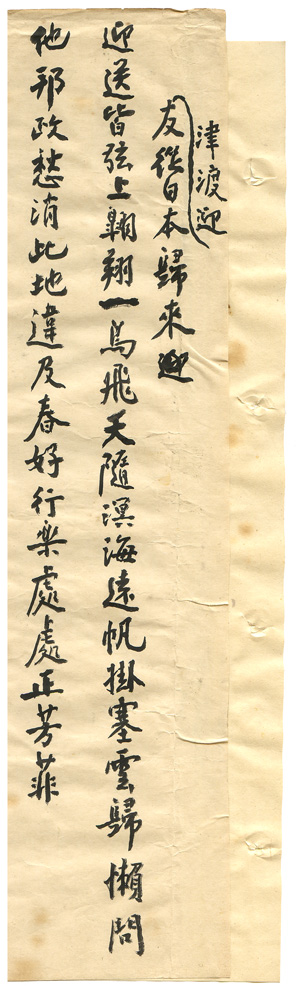 津渡迎
友從日本歸來迎
迎送皆弦上翱翔一鳥飛天隨溟海遠帆掛塞雲歸懶問
他邦政愁消此地違及春好行樂處處正芳菲